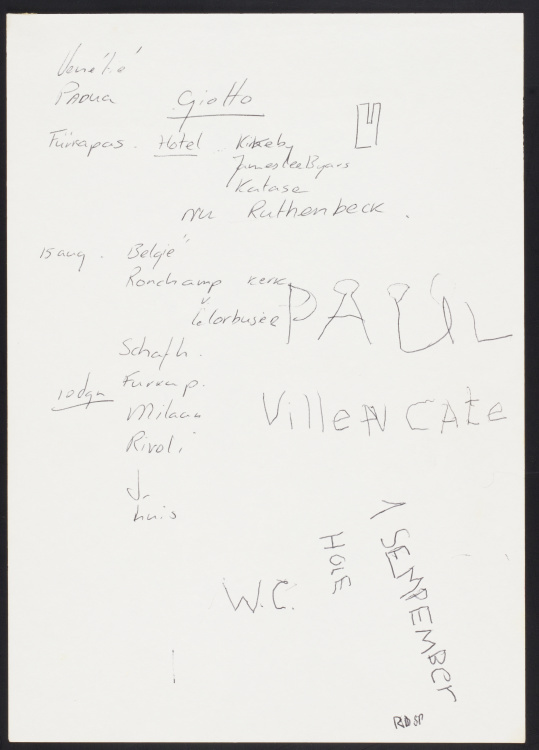 Venetië
Padua Giotto
Fürrapas. Hotel Kirkeby
James Lee Byars
Katase
nu Ruthenbeck.
15 aug. België
Ronchamp kerk
v.
leCorbusée
PAUL
Schafh.
10 dgn Furkap.
Milaan
Rivoli
Villen CATe
huis
1 SEMPEMBER
HOLE
W.C.